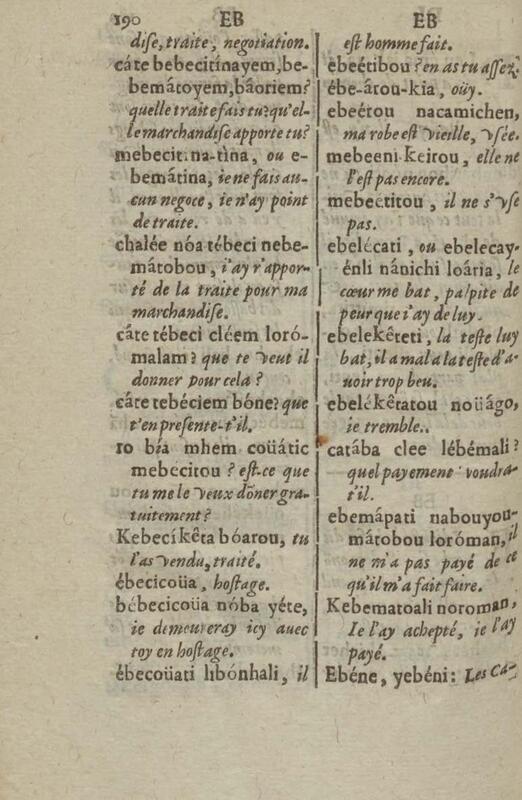 190 EB EB
dise, traite, negotiation.
cáte bebecitínayem, be-
bemátoyem, báoriem?
quelle traite fais tu? qu'el-
le marchandise apporte tu?
mebecit na-tìna, ou e-
bemátina, ie ne fais au-
cun negoce, ie n'ay point
de traite.
chalée nóa tébeci nebe-
mátobou, i'ay r'appor-
té de la traite pour ma
marchandise.
cáte tébeci cléem loró-
malam? que te veut il
donner pour cela?
cáte tebéciem bóne? que
t'en presente-t'il.
ro bía mhem coüátic
mebecitou? est-ce que
tu me le veux dõner gra-
tuitement?
Kebecíkêta bóarou, tu
l'as vendu, traité.
ébecicoüa, hostage.
bébecicoüa nóba yéte,
ie demeureray icy auec
toy en hostage.
ébecoüati libónhali, il
est homme fait.
ebeétibou? en as tu assez?
ébe-árou-kia, oüy.
ebeétou nacamichen,
ma robe est vieille, vsée.
mebeeni keirou, elle ne
l'est pas encore.
mebectitou, il ne s'vse
pas.
ebelécati, ou ebelecay-
énli nánichi loária, le
cœur me bat, palpite de
peur que i'ay de luy.
ebelekêteti, la teste luy
bat, il a mal a la teste d'a-
uoir trop beu.
ebelékêtatou noüágo,
ie tremble..
catába clee lébémali?
quel payement voudra-
t'il.
ebemápati nabouyou-
mátobou loróman, il
ne m'a pas payé de ce
qu'il m'a fait faire.
Kebematoali noroman,
Ie l'ay achepté, ie l'ay
payé.
Ebéne, yebéni: Les Ca-